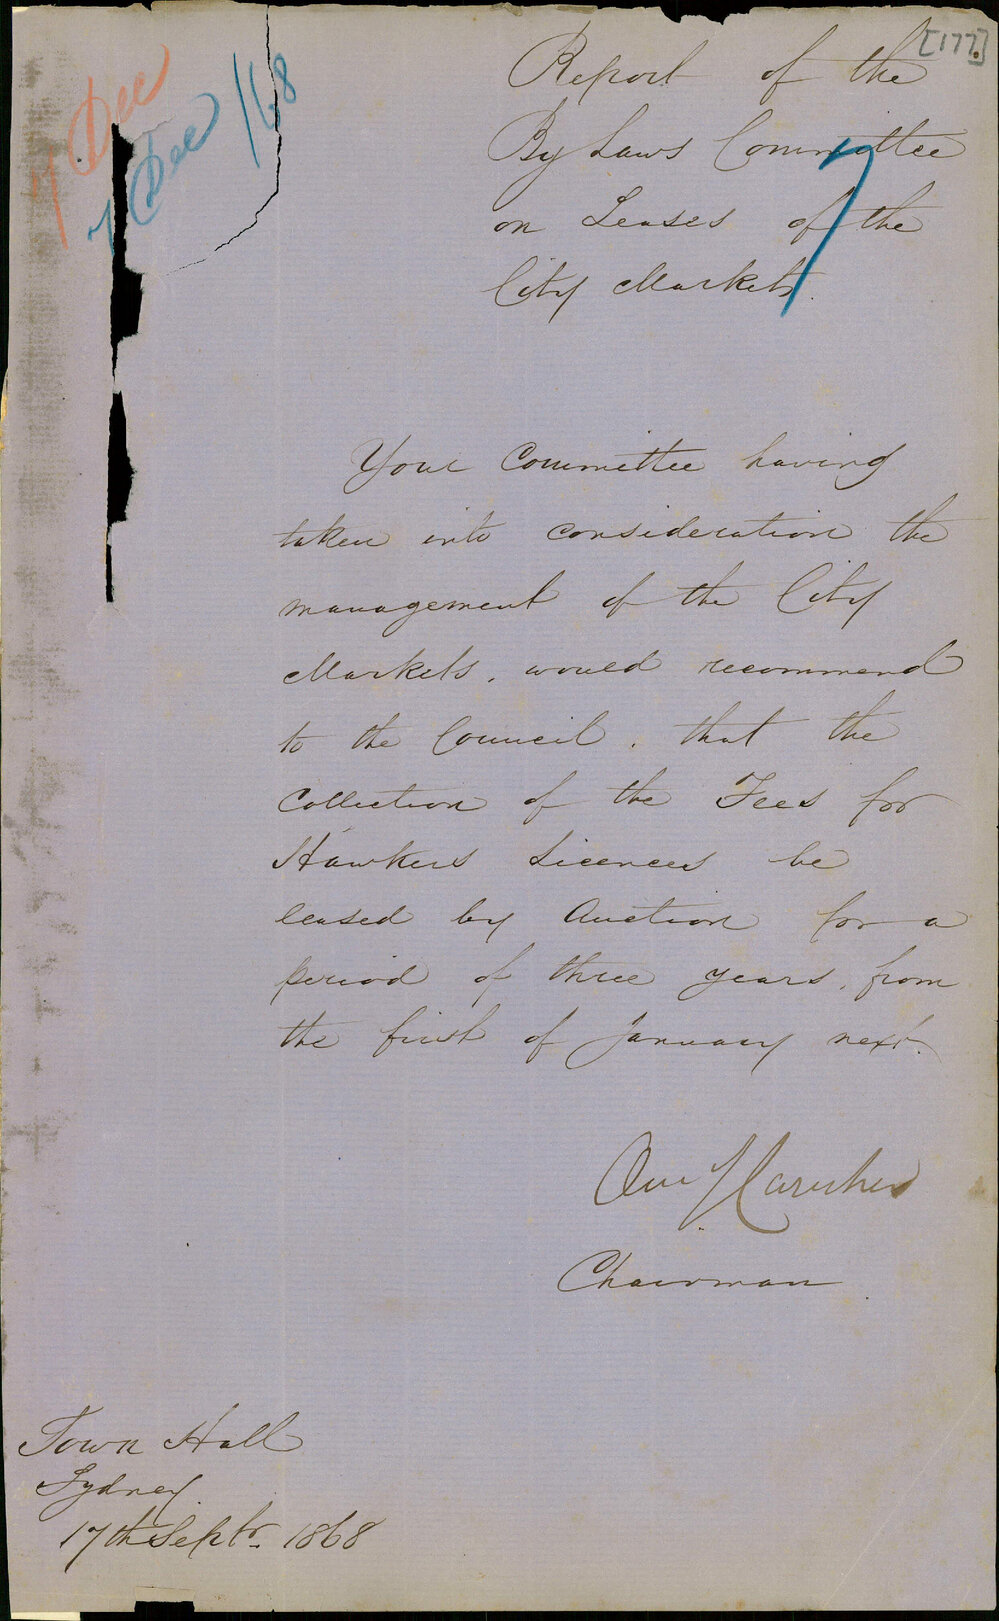 [177]
7 Dec
7 Dec /68
7
Report of the
By Laws Committee
on Leases of the
City Markets.
Your Committee having
taken into consideration the
management of the City
Markets, would recommend
to the Council, that the
Collection of the Fees for
Hawkers Licences be
leased by Auction for a
period of three years, from
the first of January next.
Chairman
Town Hall
Sydney
17th Septr. 1868